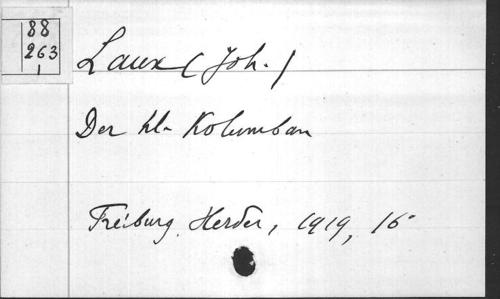 88
263
1
Laux (Joh.)
Der hl. Kolumban
Freiburg, Herder, 1919, 16°